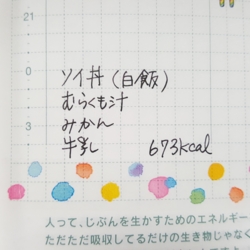 21
0
ソイ丼(白飯)
むらくも汁
3
みかん
牛乳 673kcal
人って、じぶんを生かすためのエネルギー
ただただ吸収してるだけの生き物じゃなく